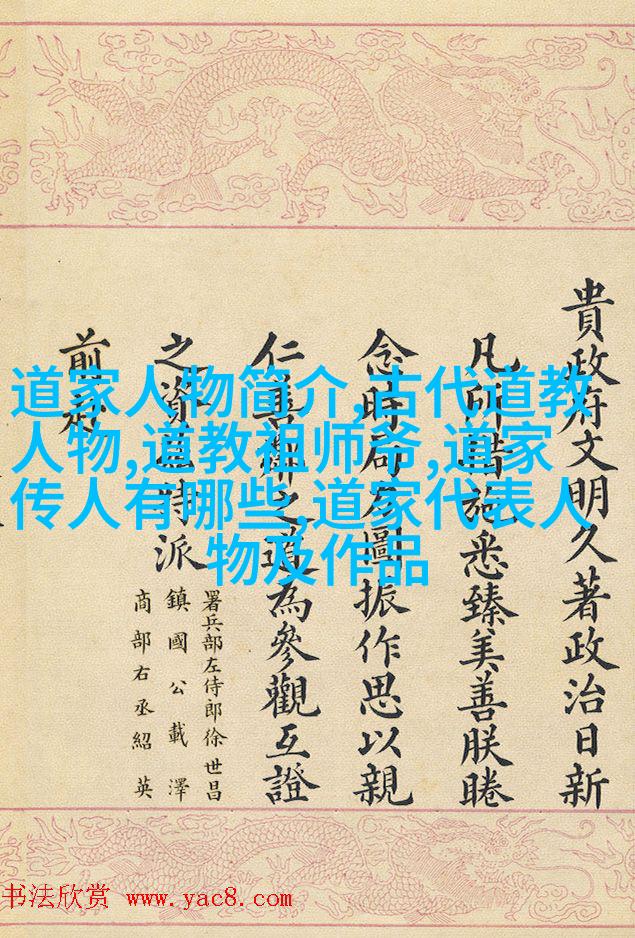 道家人物简介,古代道教
人物,道教祖师爷,道家
传人有哪些,道家代表人
物及作品
貴政府文明久著政治日新
凡所措施悉臻美善朕睠
念時局力圖振作思以親
仁善鄰之道為參觀互證
之資特派
署兵部左侍郎徐世昌
鎮國公載澤
商部右丞紹英
前赴
书法欣赏 www.yac8.com